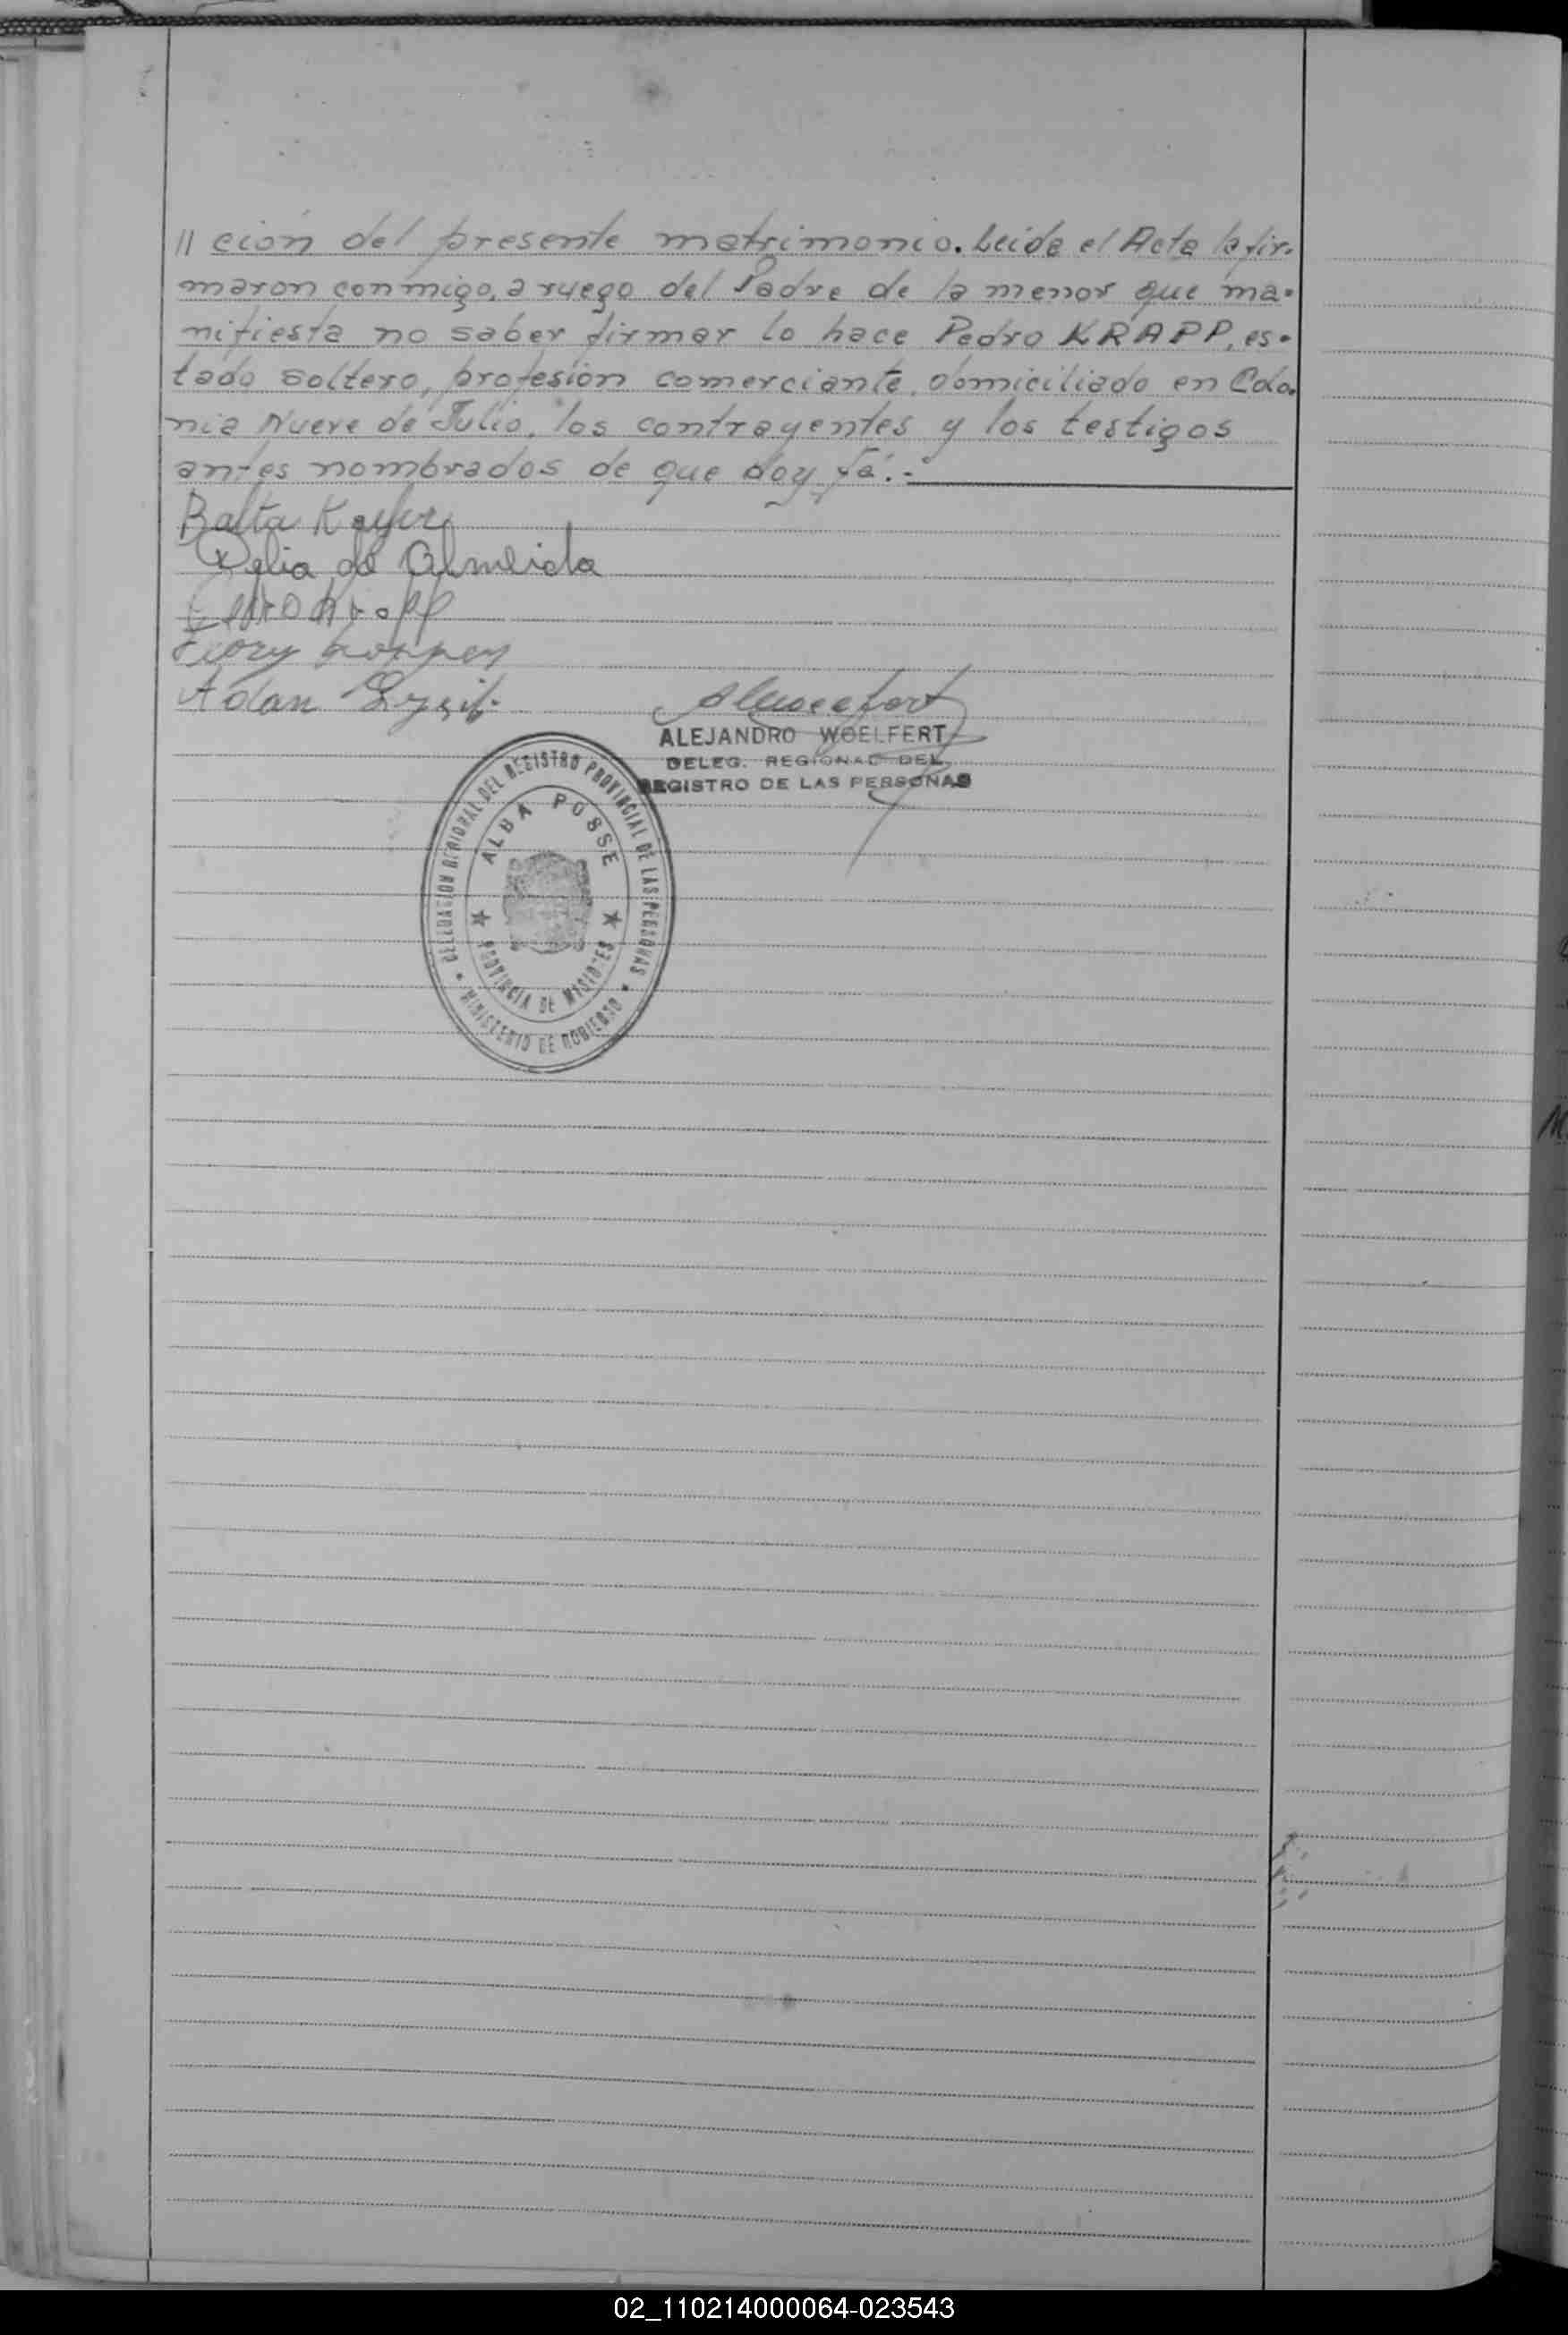 // ción del presente matrimonio. Leida el Acta la fir-
maron conmigo, a ruego del Padre de la menor que ma-
nifiesta no saber firmar lo hace Pedro KRAPP, es-
tado soltero, profesión comerciante, domiciliado en Colo-
nia Nueve de Julio, los contrayentes y los testigos
antes nombrados de que doy fé.-
Balta
Delia de Almeida
Pedro Krapp
Adan
ALEJANDRO WOELFERT
DELEG. REGIONAL DEL
REGISTRO DE LAS PERSONAS
DELEGACION REGIONAL DEL REGISTRO PROVINCIAL DE LAS PERSONAS
ALBA POSSE
PROVINCIA DE MISIONES
MINISTERIO DE GOBIERNO
02_110214000064-023543